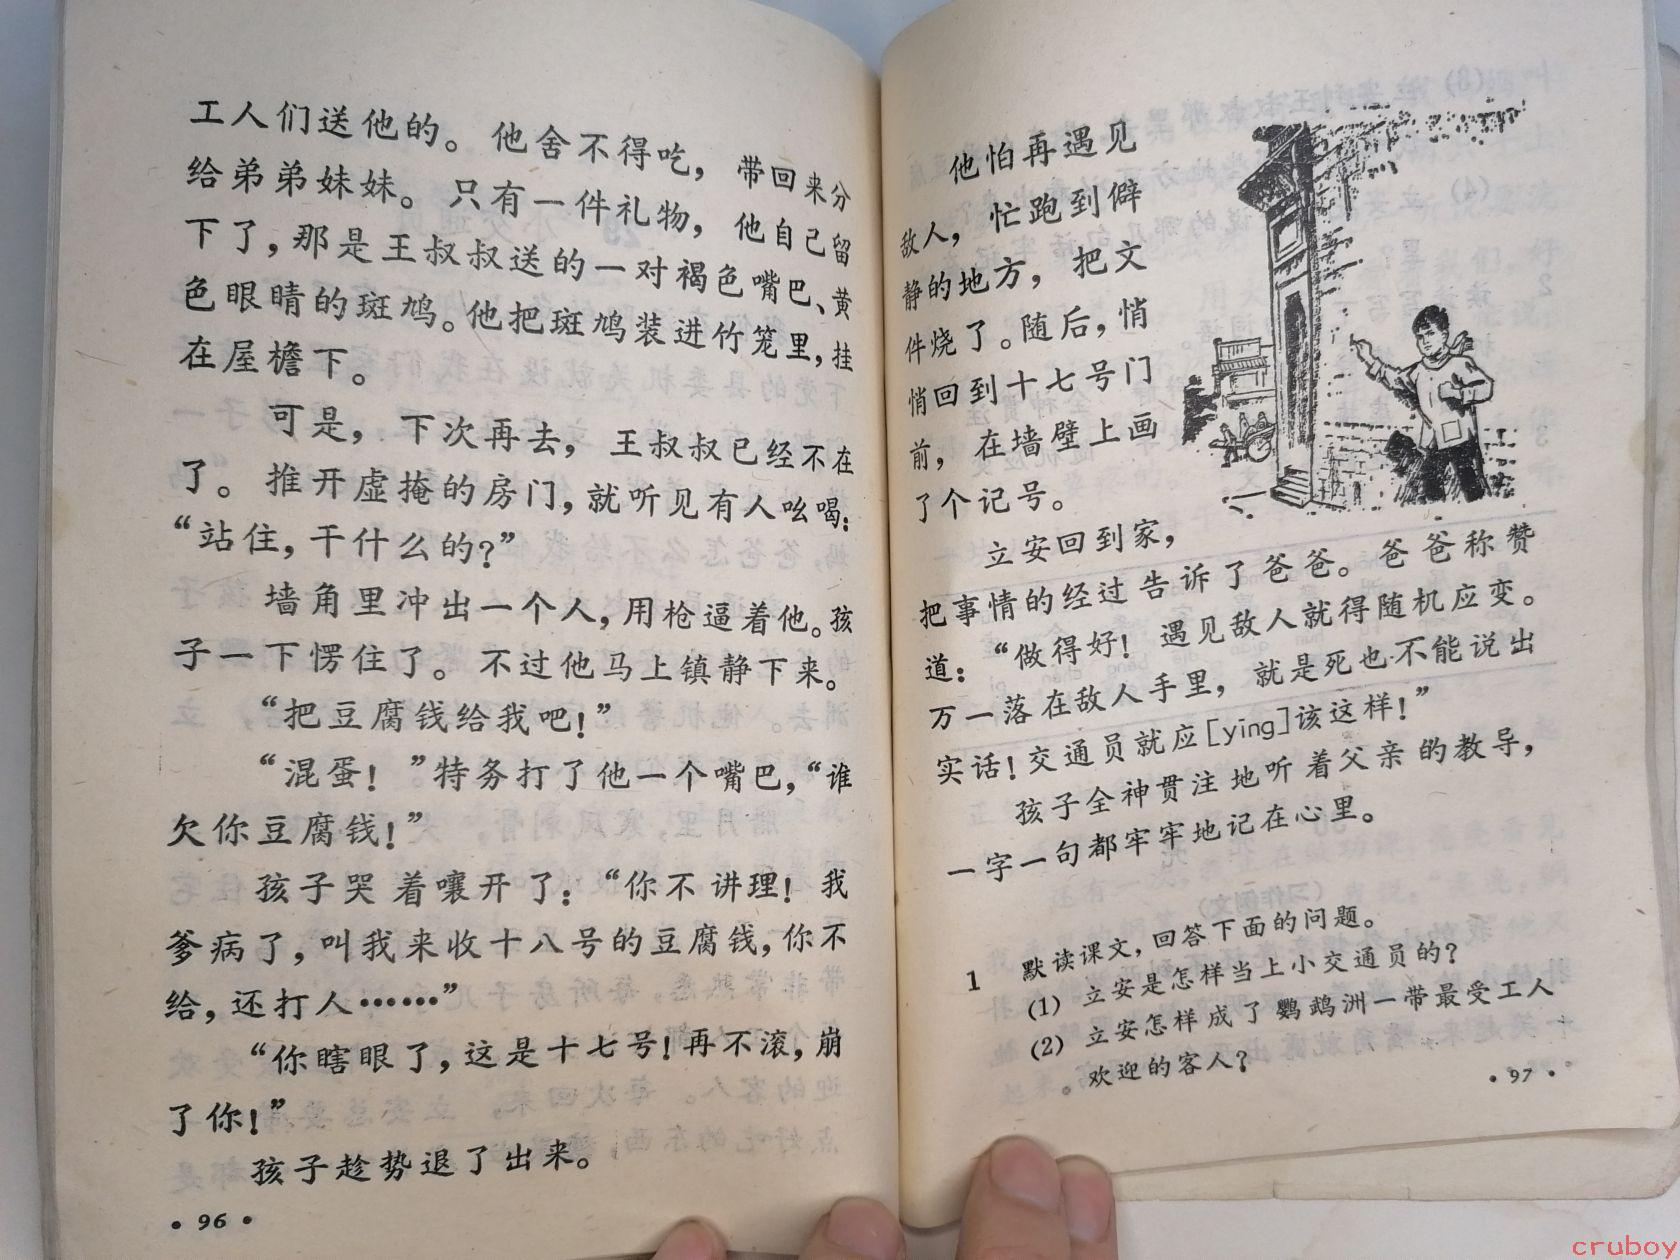 工人们送他的。他舍不得吃，带回来分
给弟弟妹妹。只有一件礼物，他自己留
下了，那是王叔叔送的一对褐色嘴巴、黄
色眼睛的斑鸠。他把斑鸠装进竹笼里，挂
在屋檐下。
可是，下次再去，王叔叔已经不在
了。推开虚掩的房门，就听见有人吆喝：
“站住，干什么的？”
墙角里冲出一个人，用枪逼着他。孩
子一下愣住了。不过他马上镇静下来。
“把豆腐钱给我吧！”
“混蛋！”特务打了他一个嘴巴，“谁
欠你豆腐钱！”
孩子哭着嚷开了：“你不讲理！我
爹病了，叫我来收十八号的豆腐钱，你不
给，还打人……”
“你瞎眼了，这是十七号！再不滚，崩
了你！”
孩子趁势退了出来。
·96·
他怕再遇见
敌人，忙跑到僻
静的地方，把文
件烧了。随后，悄
悄回到十七号门
前，在墙壁上画
了个记号。
立安回到家，
把事情的经过告诉了爸爸。爸爸称赞
道：“做得好！遇见敌人就得随机应变。
万一落在敌人手里，就是死也不能说出
实话！交通员就应[yīng]该这样！”
孩子全神贯注地听着父亲的教导，
一字一句都牢牢地记在心里。
1 默读课文，回答下面的问题。
(1) 立安是怎样当上小交通员的？
(2) 立安怎样成了鹦鹉洲一带最受工人
欢迎的客人？
·97·
cruboy